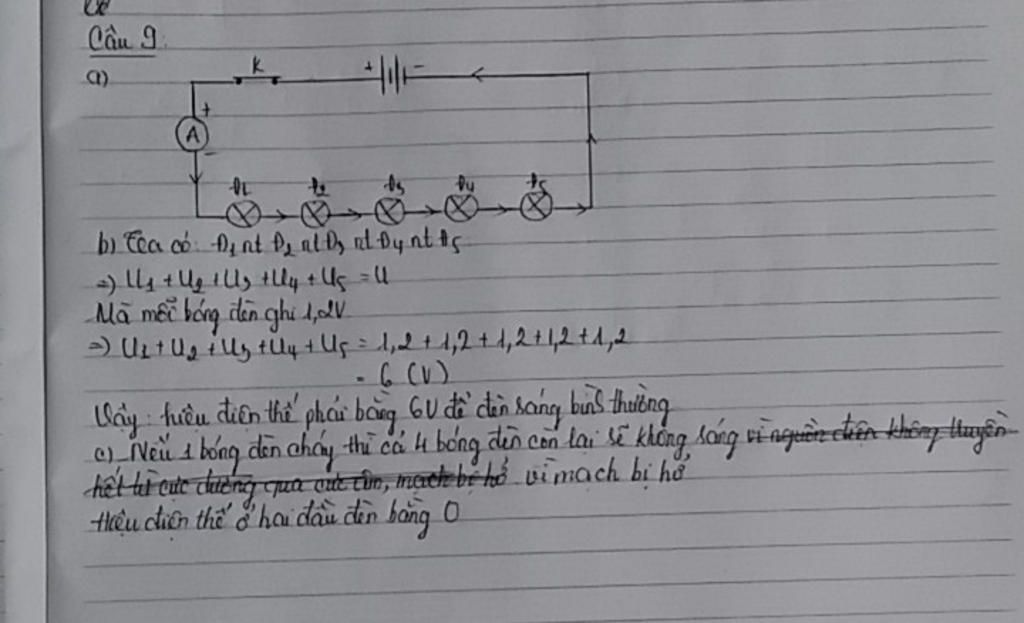 Câu 9:
a)
K
+ -
+
A
-
Đ1 Đ2 Đ3 Đ4 Đ5
b) Ta có: Đ1 nt Đ2 nt Đ3 nt Đ4 nt Đ5
=) U1 + U2 + U3 + U4 + U5 = U
Mà mỗi bóng đèn ghi 1,2V
=) U1 + U2 + U3 + U4 + U5 = 1,2 + 1,2 + 1,2 + 1,2 + 1,2
= 6 (V)
Vậy: hiệu điện thế phải bằng 6V để đèn sáng bình thường
c) Nếu 1 bóng đèn cháy thì cả 4 bóng đèn còn lại sẽ không sáng vì nguồn điện không truyền
hết từ cực dương qua cực âm, mạch bị hở vì mạch bị hở
Hiệu điện thế ở hai đầu đèn bằng 0